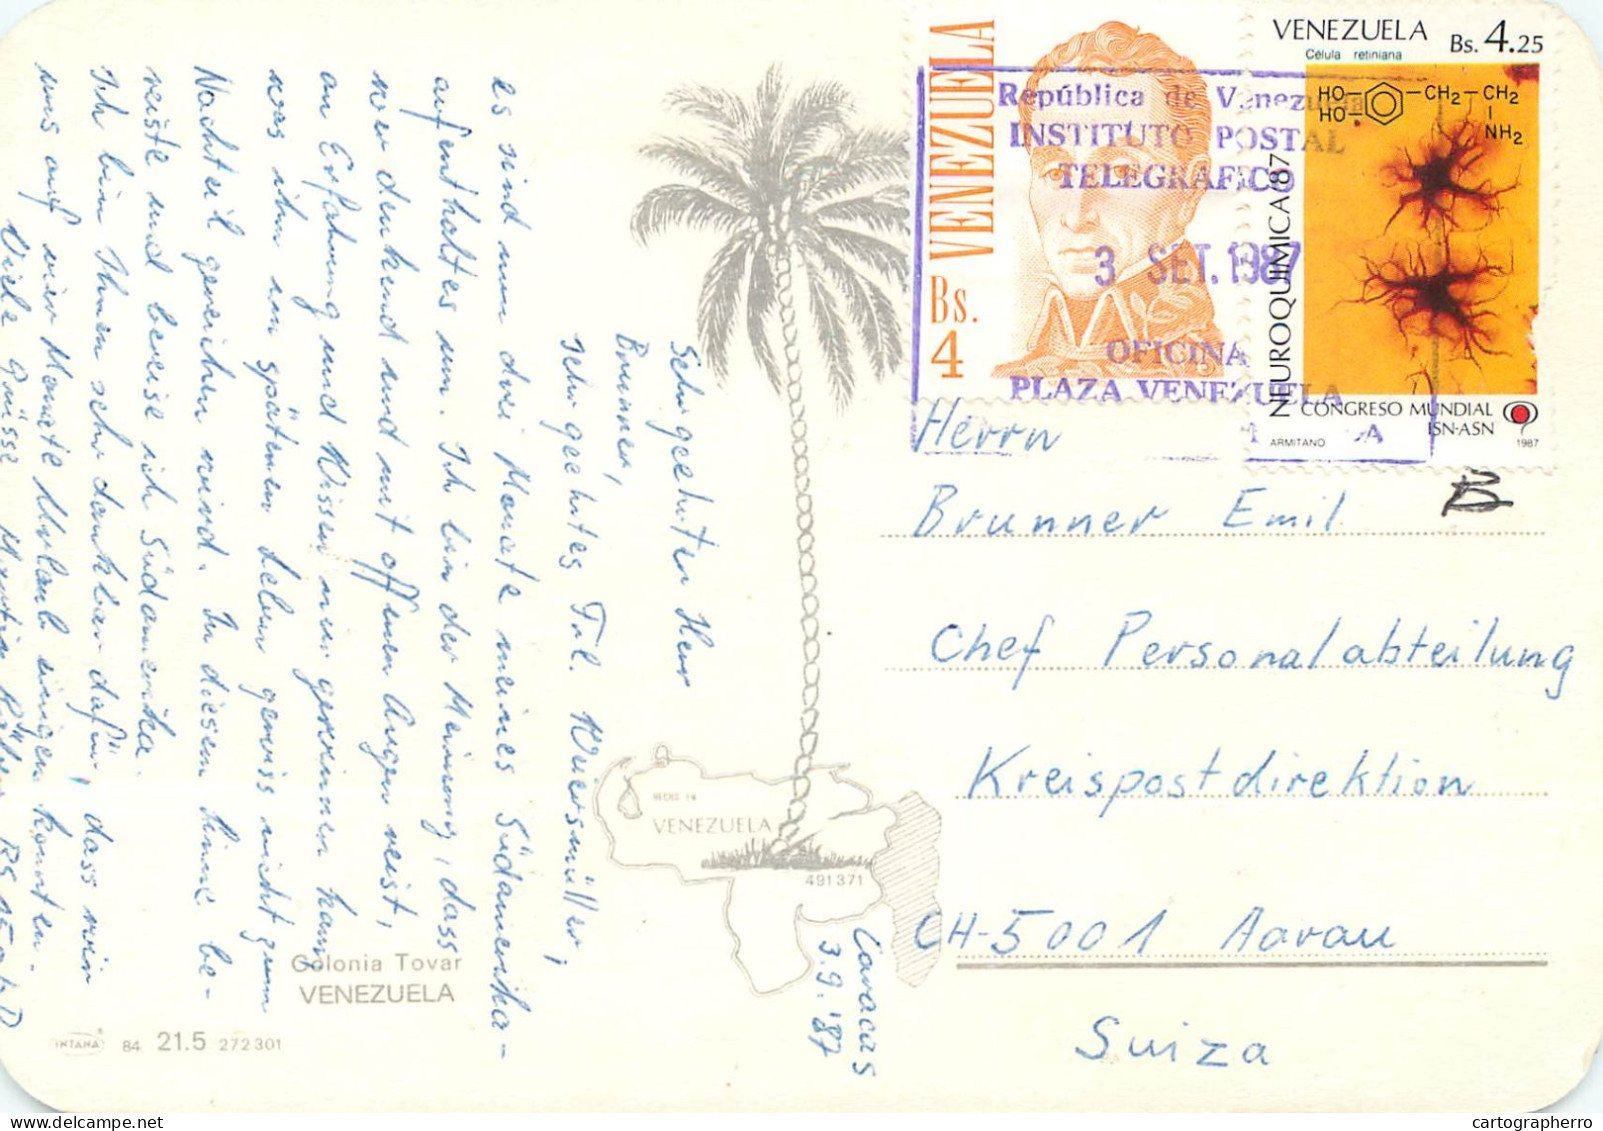 Caracas
3.9.'87
Sehr geehrter Herr
Brunner,
Sehr geehrtes Frl. Wuersmüller,
es sind nun drei Monate meines Südamerika-
aufenthaltes um. Ich bin der Meinung, dass
wer denkend und mit offenen Augen reist,
an Erfahrung und Wissen nur gewinnen kann
was ihm im späteren Leben gewiss nicht zum
Nachteil gereichen wird. In diesem Sinne be-
reiste und bereise ich Südamerika.
Ich bin Ihnen sehr dankbar dafür, dass wir
uns auf vier Monate Urlaub einigen konnten.
Viele Grüsse Martin
Colonia Tovar
VENEZUELA
INTANA
84 21.5 272301
VENEZUELA
491371
VENEZUELA
Bs.
4
VENEZUELA Bs. 4.25
Célula retiniana
HO CH2 CH2
HO NH2
NEUROQUIMICA/87
CONGRESO MUNDIAL
ISN-ASN
ARMITANO 1987
República de Venezuela
INSTITUTO POSTAL
TELEGRAFICO
3 SET. 1987
OFICINA
PLAZA VENEZUELA
Herrn
B
Brunner Emil
Chef Personalabteilung
Kreispostdirektion
CH-5001 Aarau
Suiza
cartographerro